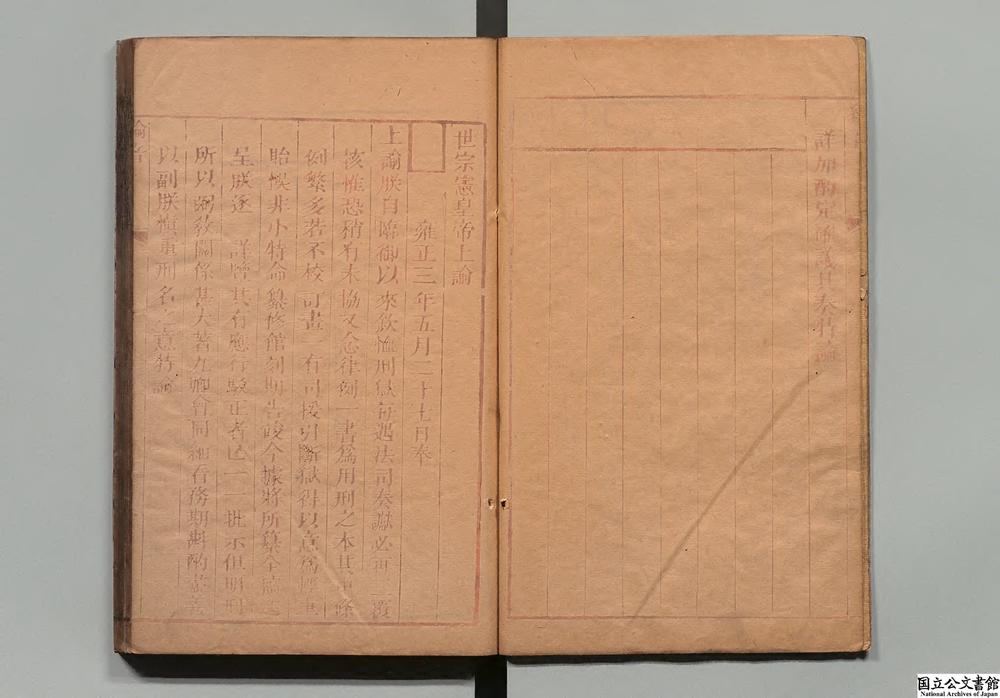 詳加酌定確議具奏特諭
世宗憲皇帝上諭
雍正三年五月二十七日奉
上諭朕自臨御以來欽恤刑獄每遇法司奏讞必再三覆
核惟恐稍有未協又念律例一書爲用刑之本其中條
例繁多若不校訂畫一有司援引斷獄得以意爲輕重
貽悞非小特命纂修館刻期告竣今據將所纂全稿進
呈朕逐一詳覽其有應行駁正者已一一批示但明刑
所以弼教關係甚大著九卿會同細看務期斟酌盡善
以副朕慎重刑名之意特諭
国立公文書館
National Archives of Japan